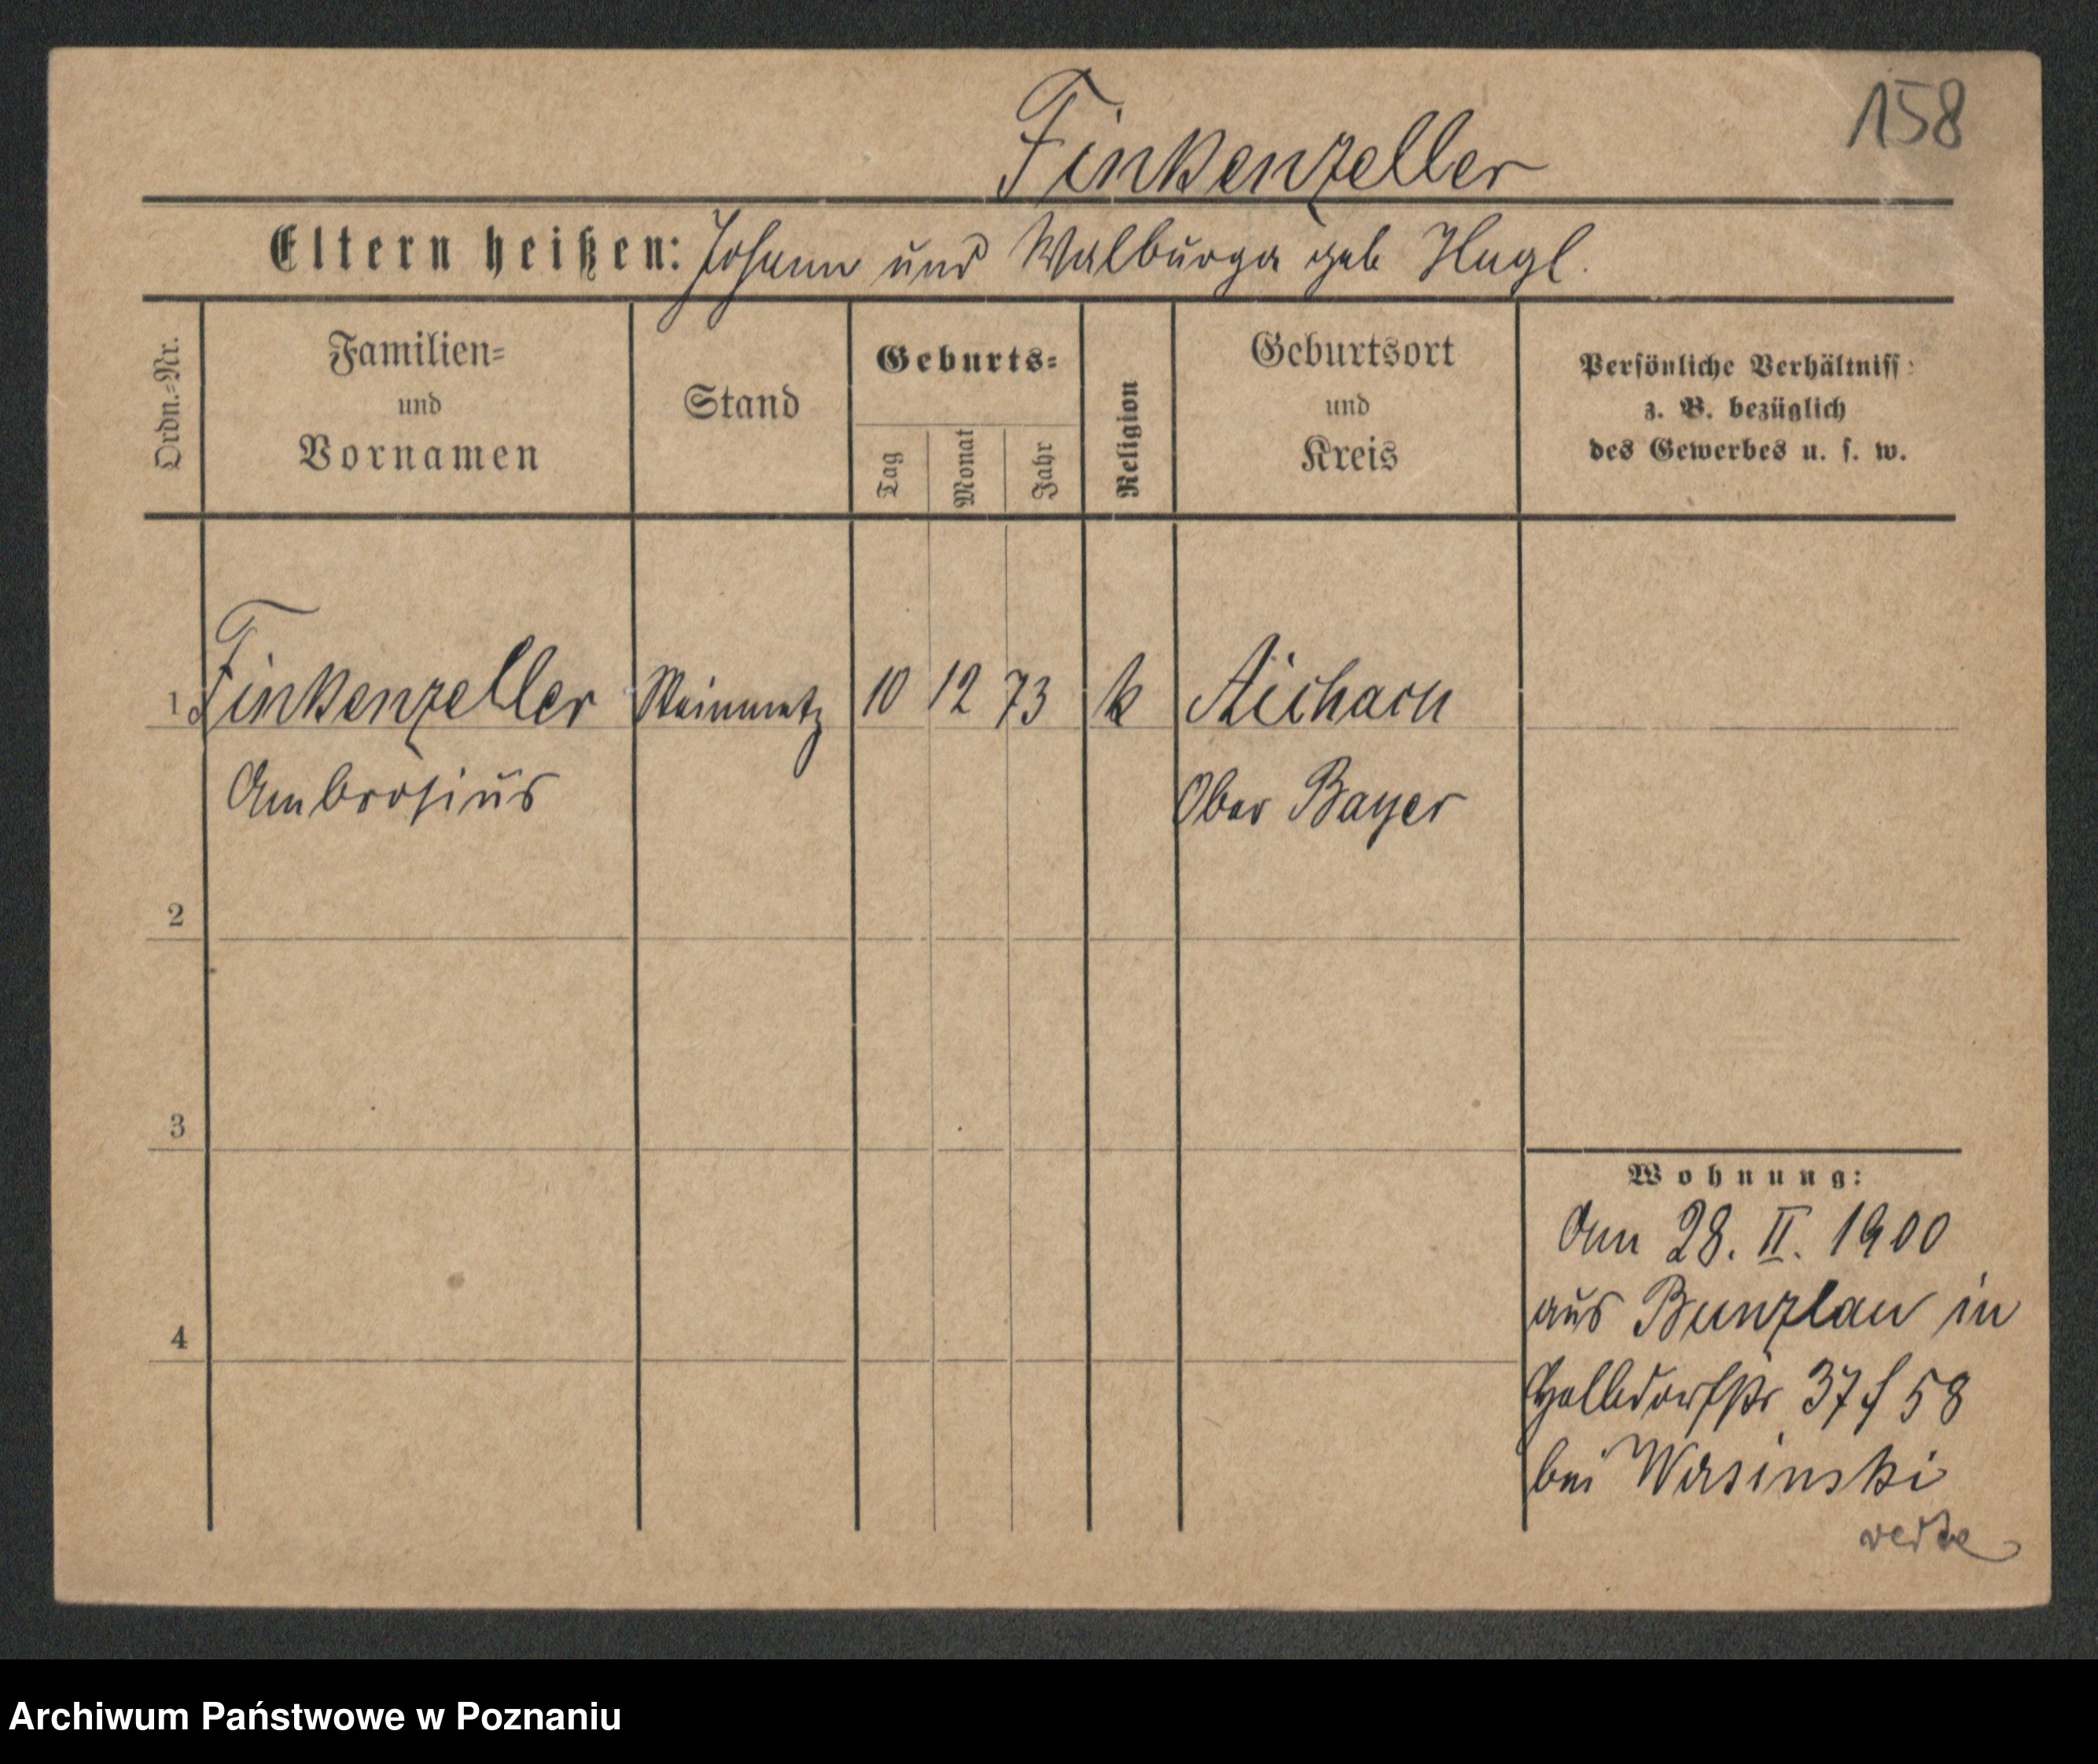 158
Finkenzeller
Eltern heißen: Johann und Walburga geb Hugl.
Ordn.-Nr.
Familien-
und
Vornamen
Stand
Geburts-
Tag
Monat
Jahr
Religion
Geburtsort
und
Kreis
Persönliche Verhältniss
z. B. bezüglich
des Gewerbes u. s. w.
1 Finkenzeller Steinmetz 10 12 73 k Aichach
Ambrosius Ober Bayer
2
3
4
Wohnung:
Am 28. II. 1900
aus Bunzlau in
Halbdorfstr 37 f 58
bei Wasinski